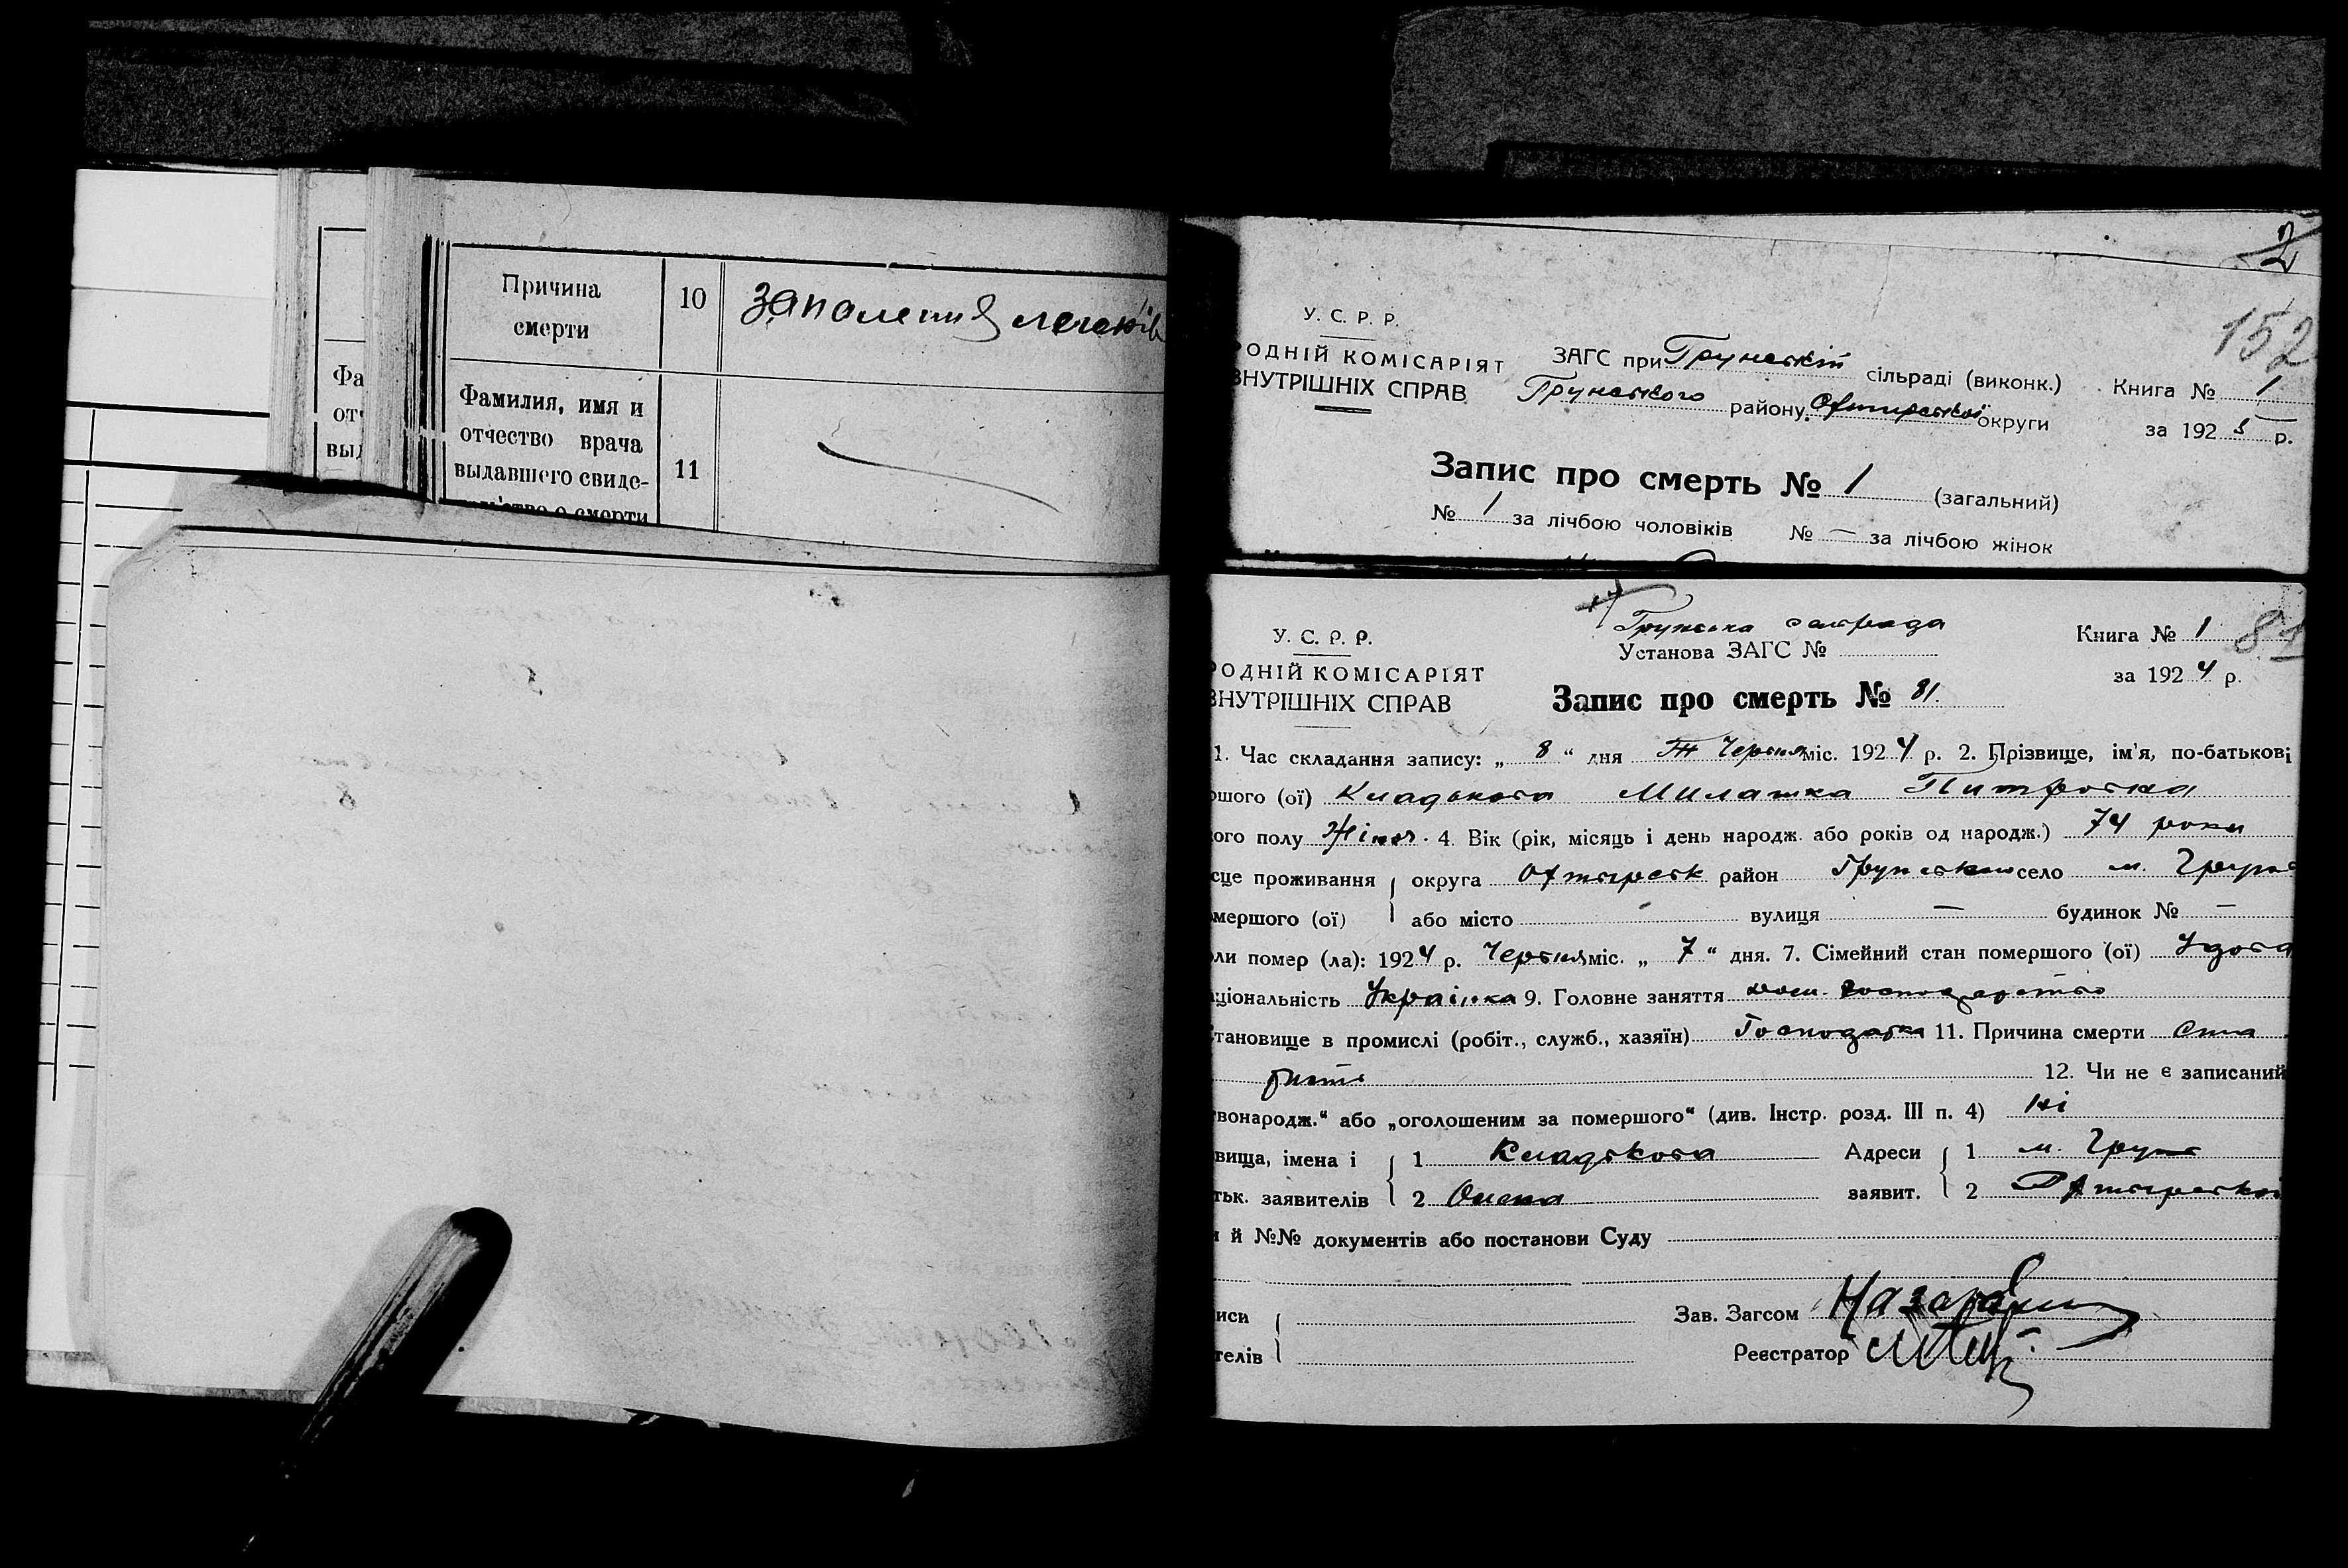 Причина смерти 10 запаления легенів
Фамилия, имя и отчество врача выдавшего свиде- 11
Фа
от
выд
2
152
У. С. Р. Р.
РОДНІЙ КОМІСАРІЯТ ЗАГС при Грунській сільраді (виконк.) Книга № 1
ВНУТРІШНІХ СПРАВ Грунського району Охтирської округи за 1925 р.
Запис про смерть № 1 (загальний)
№ 1 за лічбою чоловіків № — за лічбою жінок
Грунська сельрада
У. С. Р. Р. Установа ЗАГС № Книга № 1 81
РОДНІЙ КОМІСАРІЯТ за 1924 р.
ВНУТРІШНІХ СПРАВ Запис про смерть № 81.
1. Час складання запису: „ 8 “ дня Червня міс. 1924 р. 2. Прізвище, ім'я, по-батькові
ршого (ої) Кладькова Милашка Питровна
кого полу Жіноч. 4. Вік (рік, місяць і день народж. або років од народж.) 74 роки
сце проживання округа Охтирськ район Грунського село м. Грунь
омершого (ої) або місто — вулиця — будинок № —
оли помер (ла): 1924 р. Червня міс. „ 7 “ дня. 7. Сімейний стан помершого (ої) Удова
аціональність Українка 9. Головне заняття дом. господарство
Становище в промислі (робіт., служб., хазяїн) Господарка 11. Причина смерти Ста
рість 12. Чи не є записаний
твонародж.“ або „оголошеним за помершого“ (див. Інстр. розд. III п. 4) Ні
звища, імена і 1 Кладькова Адреси 1 м. Грунь
тьк. заявителів 2 Олена заявит. 2 Охтирської
и й №№ документів або постанови Суду
иси Зав. Загсом
телів Реєстратор